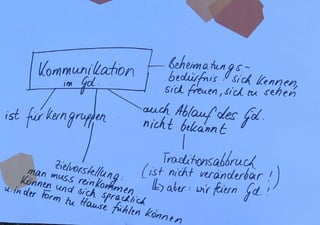 Kommunikation
im Gd.
Beheimatungs-
bedürfnis: sich kennen,
sich freuen, sich zu sehen
ist für Kerngruppen
auch Ablauf des Gd.
nicht bekannt
Traditionsabbruch
(ist nicht veränderbar!)
↳ aber: wir feiern Gd.!
Zielvorstellung:
man muss reinkommen
können und sich sprachlich
u. in der Form zu Hause fühlen können